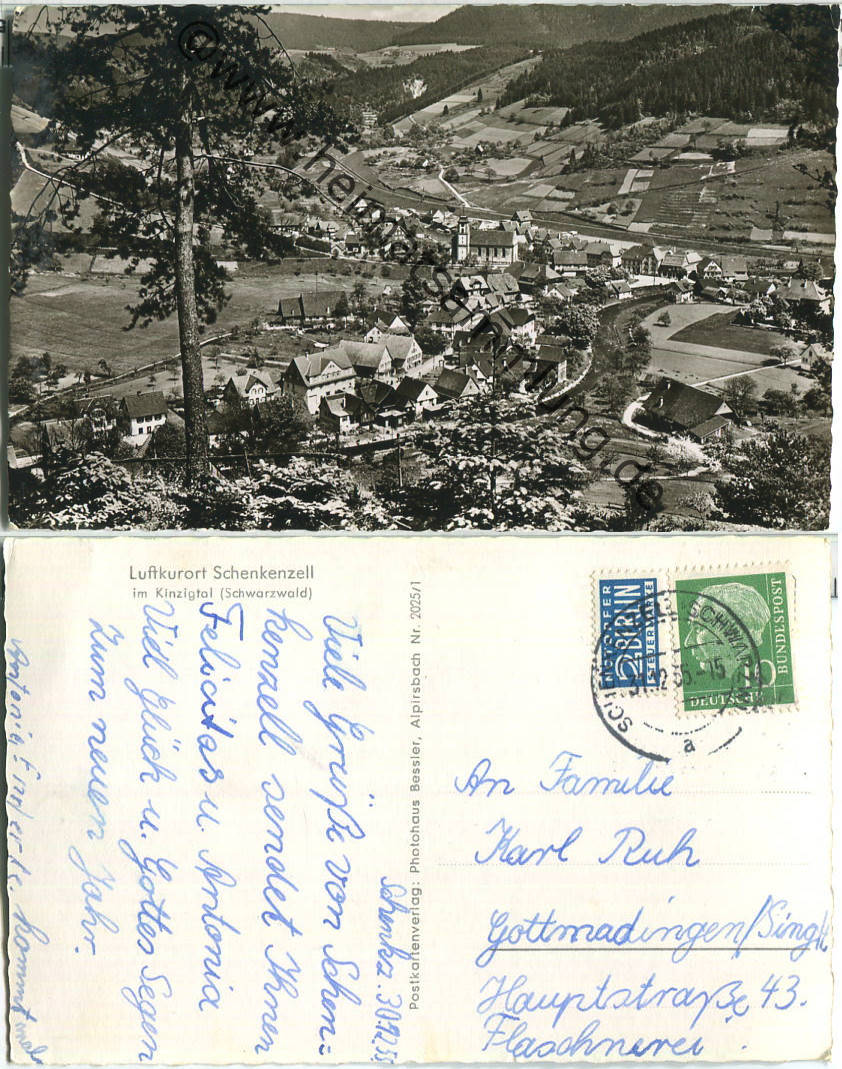 ©www.heimatsammlung.de
Luftkurort Schenkenzell
im Kinzigtal (Schwarzwald)
Schenkz. 30.12.55
Viele Grüße von Schen-
kenzell sendet Ihnen
Felicitas u. Antonia
Viel Glück u. Gottes Segen
Zum neuen Jahr.
Antonia
kommt mal
Postkartenverlag: Photohaus Bessler, Alpirsbach Nr. 2025/1
NOTOPFER
2 BERLIN
STEUERMARKE
10
DEUTSCHE
BUNDESPOST
a
An Familie
Karl Ruh
Gottmadingen/Singh
Hauptstraße 43.
Flaschnerei.